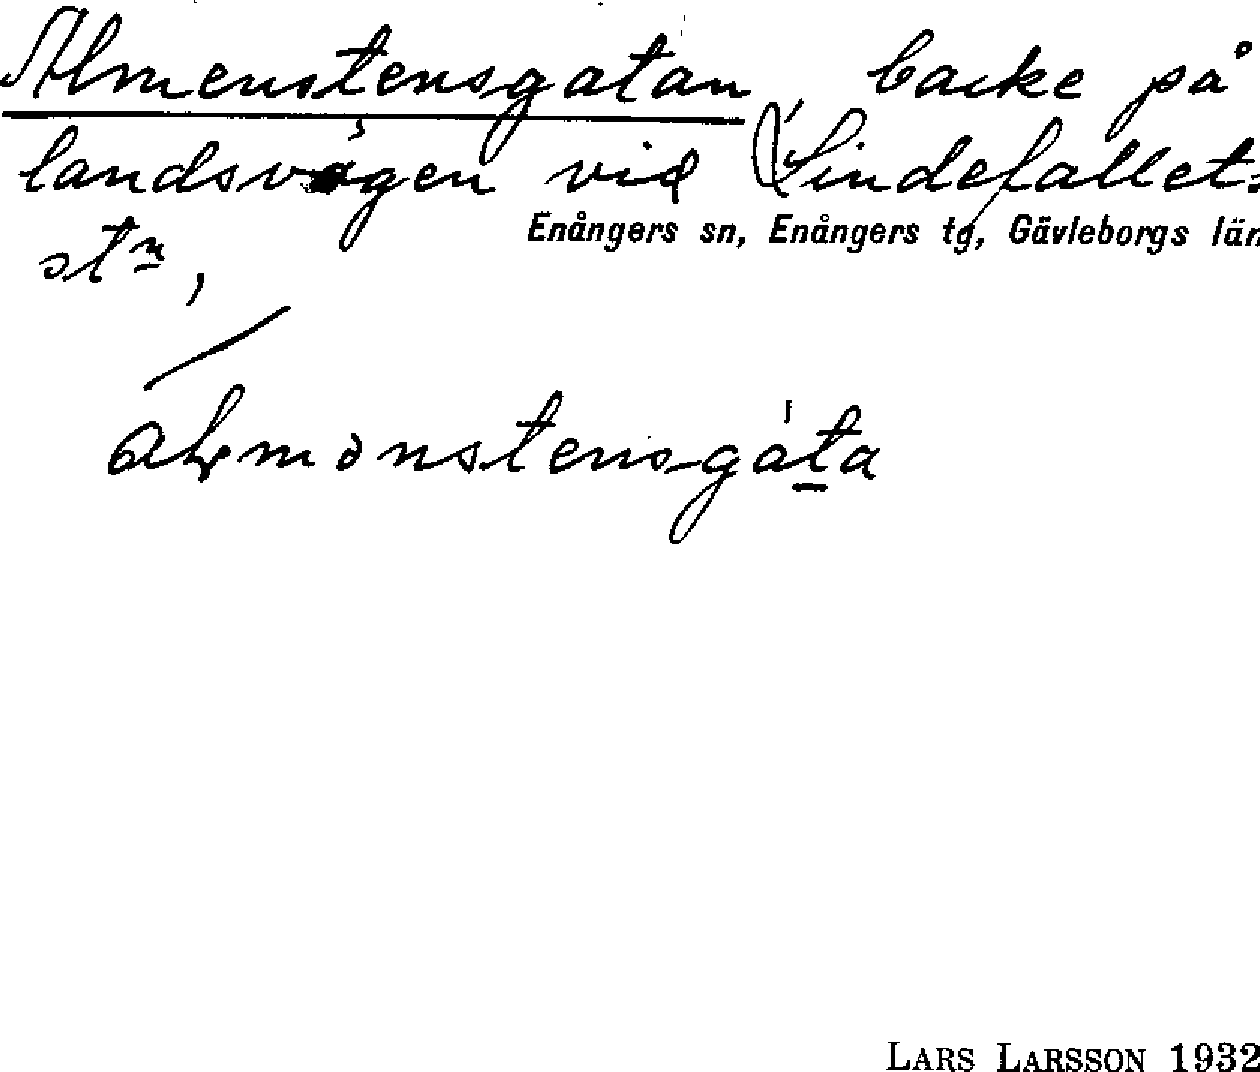 Almenstensgatan, backe på
landsvägen vid Lindefallets
Enångers sn, Enångers tg, Gävleborgs län
stn,
almənstensgáta
LARS LARSSON 1932